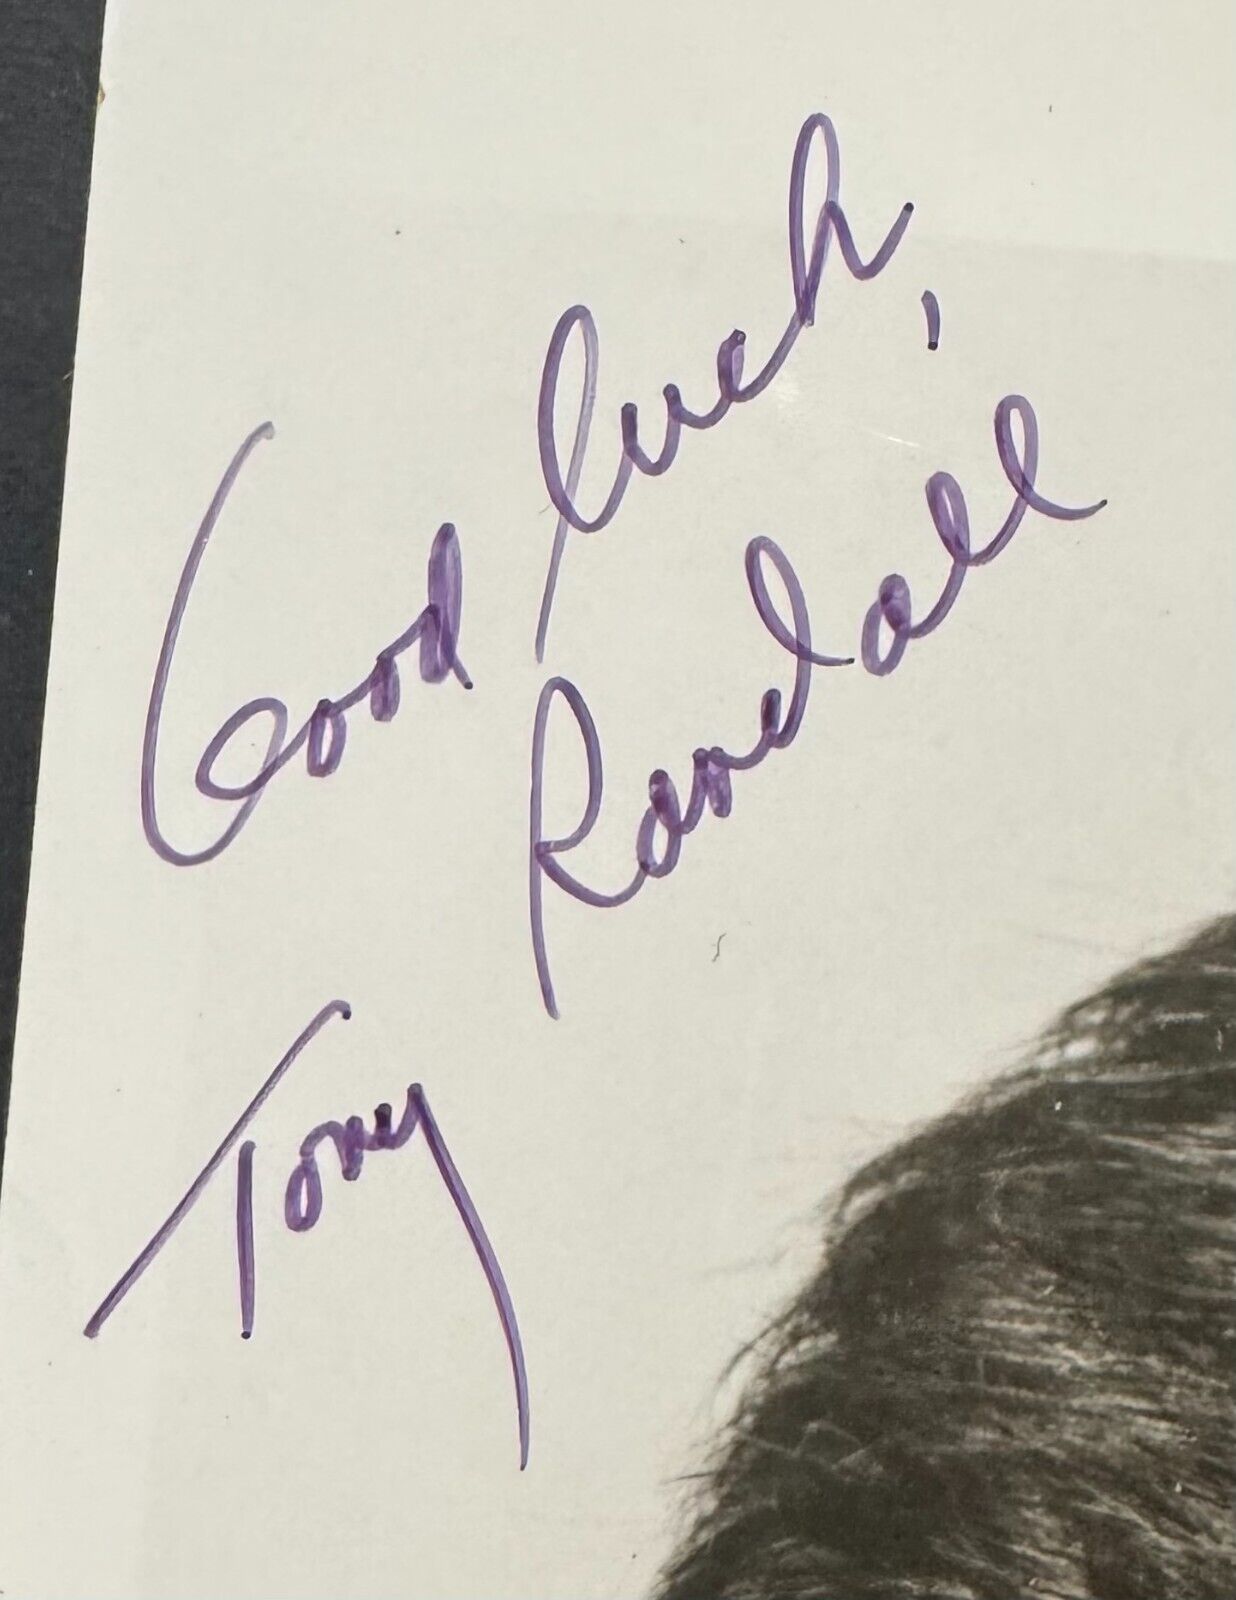 Good Luck,
Tony Randall